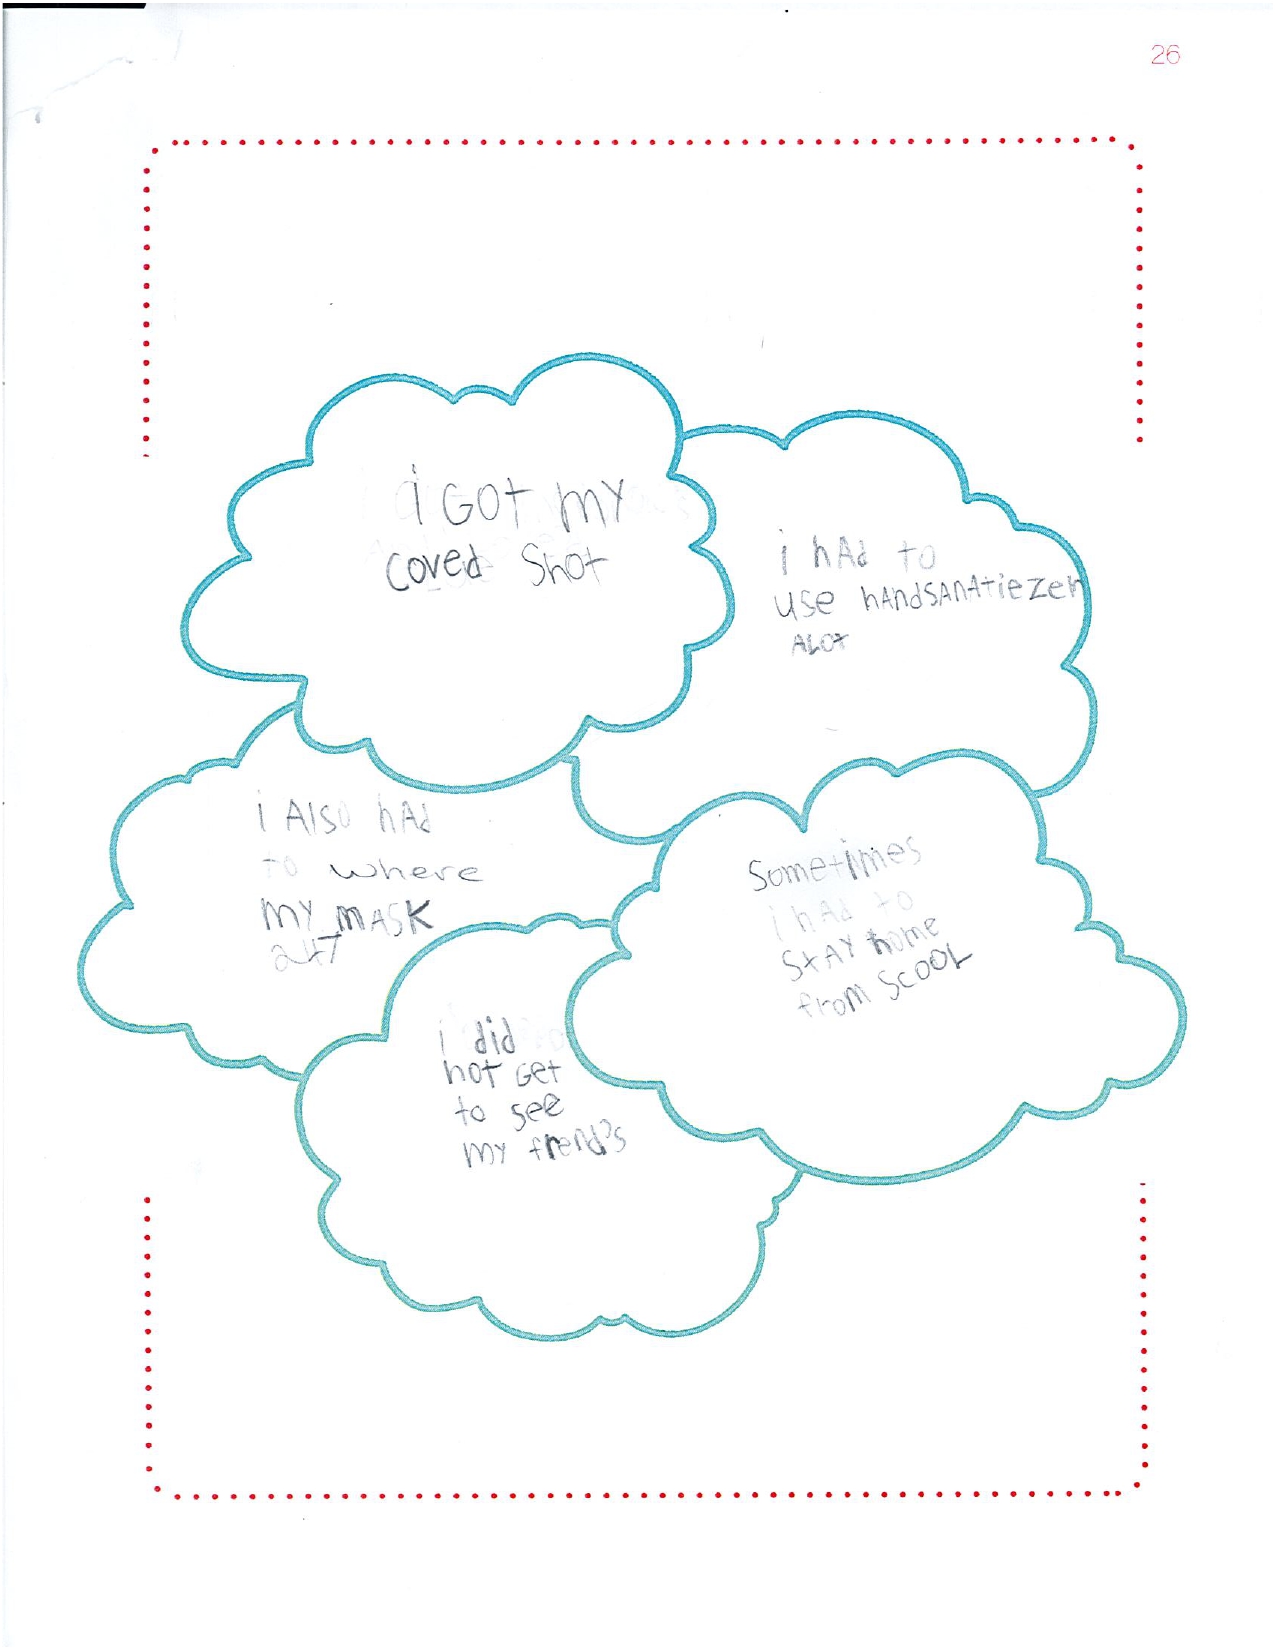 26
i GOt my
coved Shot
i hAd to
use hAndSAnAtiezer
ALot
i AlSo hAd
to where
my mASK
247
Sometimes
i hAd to
StAy home
from ScOOL
i did
not Get
to see
my frend's